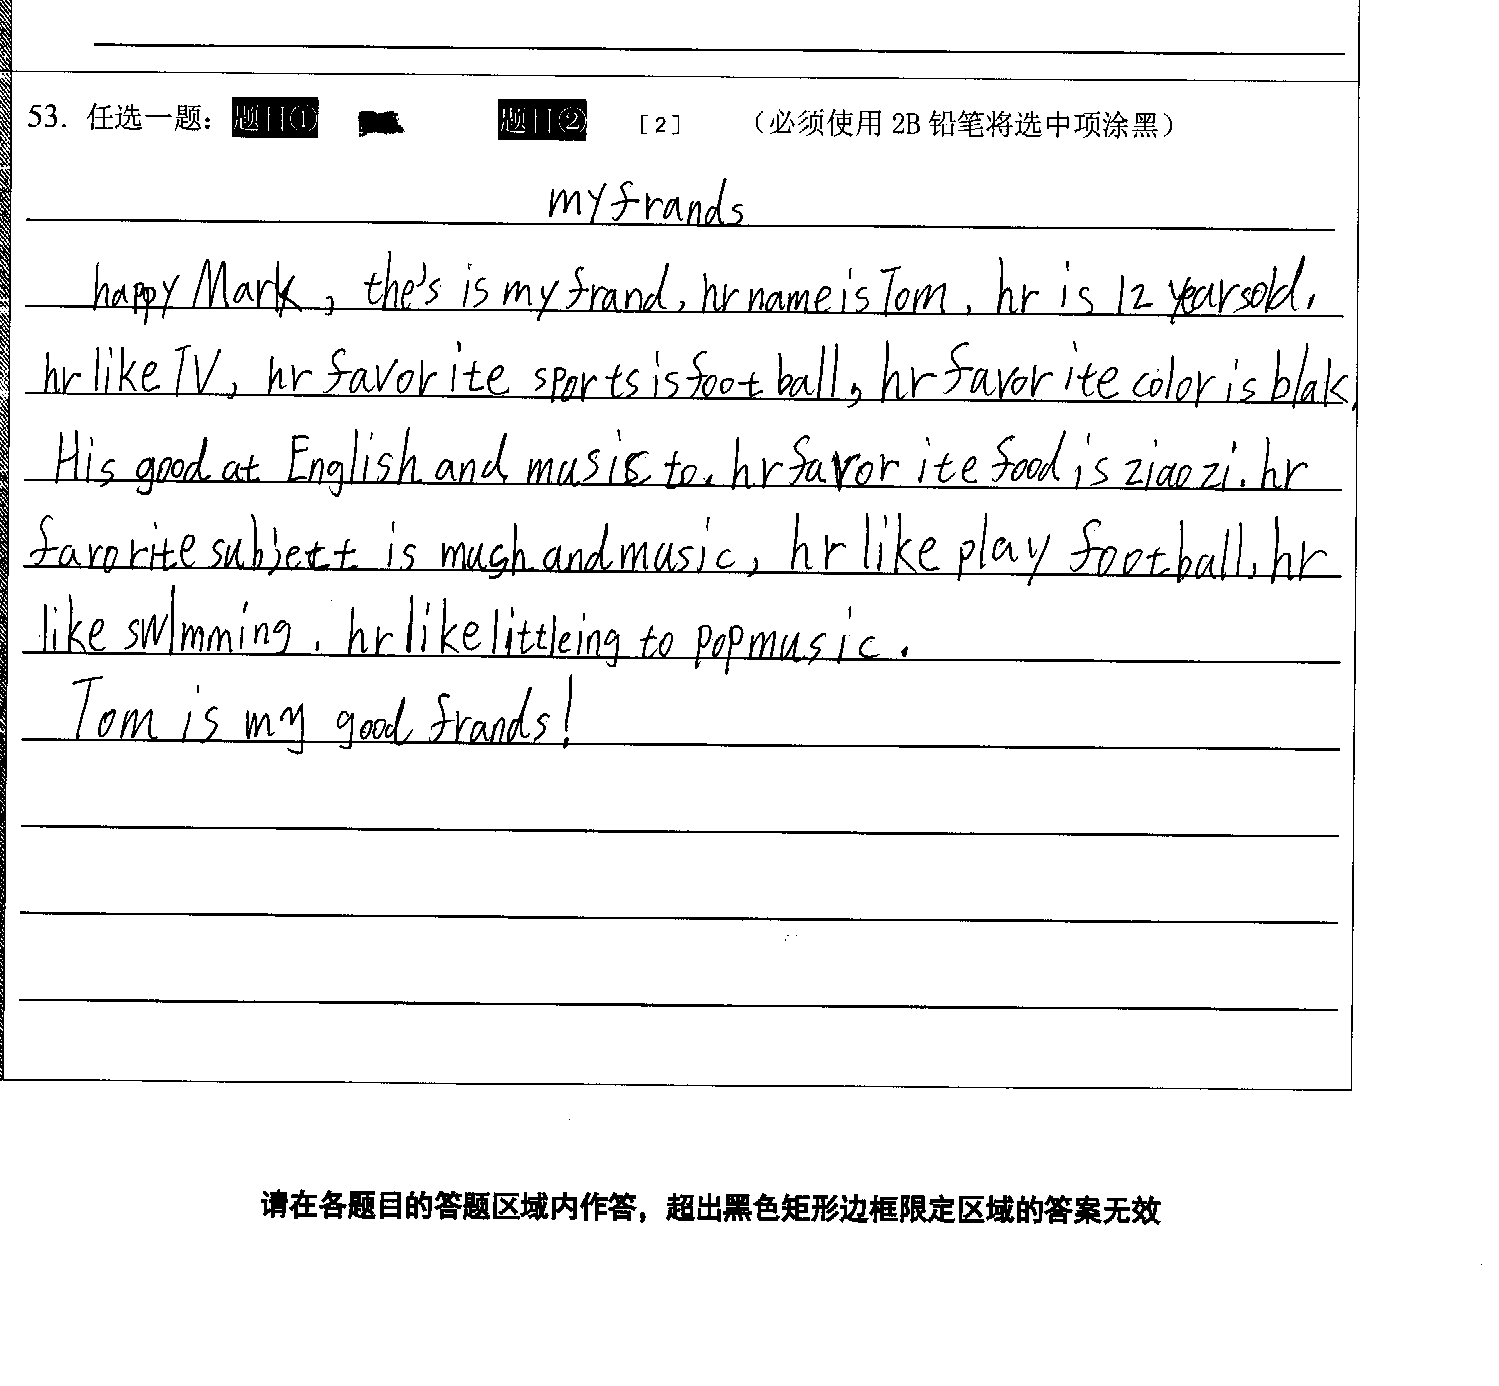 53. 任选一题： 题目① 题目② [2] （必须使用 2B 铅笔将选中项涂黑）
my frands
happy Mark, the's is my frand, hr name is Tom. hr is 12 years old.
hr like TV, hr favorite sports is foot ball, hr favorite color is blak.
His good at English and music to. hr favorite food is ziao zi. hr
favorite subjett is mush and music, hr like play football, hr
like swlmming. hr like littleing to pop music.
Tom is my good frands!
请在各题目的答题区域内作答，超出黑色矩形边框限定区域的答案无效